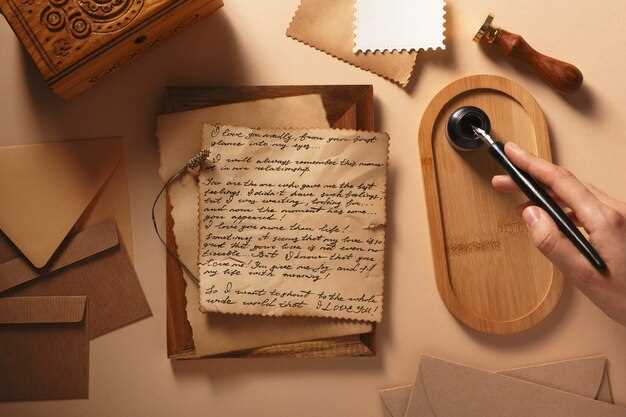 I love you madly, from your first
glance into my eyes...
I will always remember this moment
in our relationship
You are the one who gave me the gift
feelings I didn't have such feelings
but I was waiting, looking for...
and now the moment has come...
you appeared!
I love you more than life!
Sometimes it seems that my love is so
great that your love is not even
But I know that you
love me! You give me joy and fill
my life with meaning!
So I want to shout to the whole
wide world that I LOVE YOU!